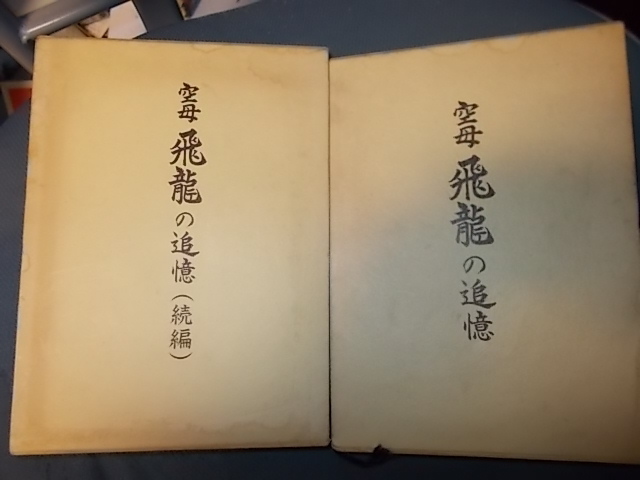 空母飛龍の追憶
空母飛龍の追憶(続編)